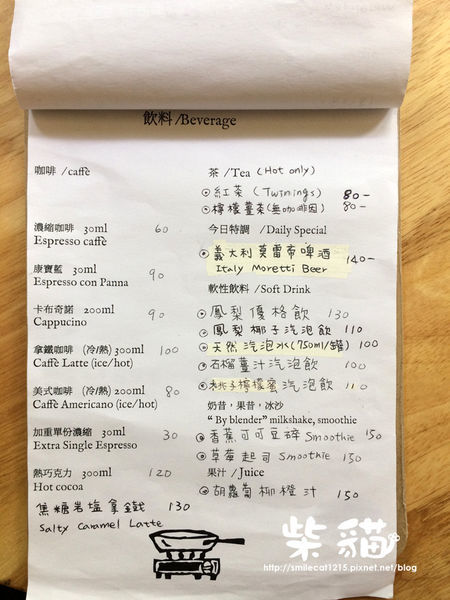 飲料 /Beverage
咖啡 /caffè
濃縮咖啡 30ml 60
Espresso caffè
康寶藍 30ml 90
Espresso con Panna
卡布奇諾 200ml 90
Cappucino
拿鐵咖啡 (冷/熱) 300ml 100
Caffè Latte (ice/hot)
美式咖啡 (冷/熱) 200ml 80
Caffè Americano (ice/hot)
加重單份濃縮 30ml 30
Extra Single Espresso
熱巧克力 300ml 120
Hot cocoa
焦糖岩塩拿鐵 130
Salty Caramel Latte
茶 /Tea (Hot only)
紅茶 (Twinings) 80-
檸檬薑茶(無咖啡因) 80-
今日特調 /Daily Special
義大利莫雷帝啤酒 140-
Italy Moretti Beer
軟性飲料 /Soft Drink
鳳梨優格飲 130
鳳梨椰子汽泡飲 110
天然汽泡水(750ml/罐) 100
石榴薑汁汽泡飲 100
桃子檸檬蜜汽泡飲 110
奶昔,果昔,冰沙
"By blender" milkshake, smoothie
香蕉可可豆碎 Smoothie 150
草莓起司 Smoothie 150
果汁 /Juice
胡蘿蔔柳橙汁 150
柴貓
http://smilecat1215.pixnet.net/blog